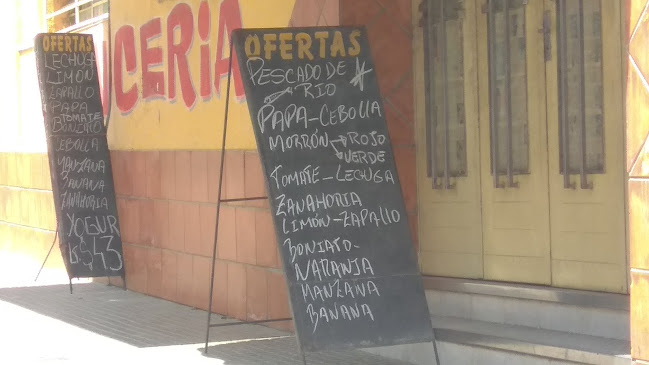 OFERTAS
LECHUGA
LIMÓN
ZAPALLO
PAPA
TOMATE
BONIATO
CEBOLLA
MANZANA
BANANA
ZANAHORIA
YOGUR
$43
CERIA
OFERTAS
PESCADO DE
RIO
PAPA-CEBOLLA
MORRÓN ROJO
VERDE
TOMATE-LECHUGA
ZANAHORIA
LIMÓN-ZAPALLO
BONIATO-
NARANJA
MANZANA
BANANA